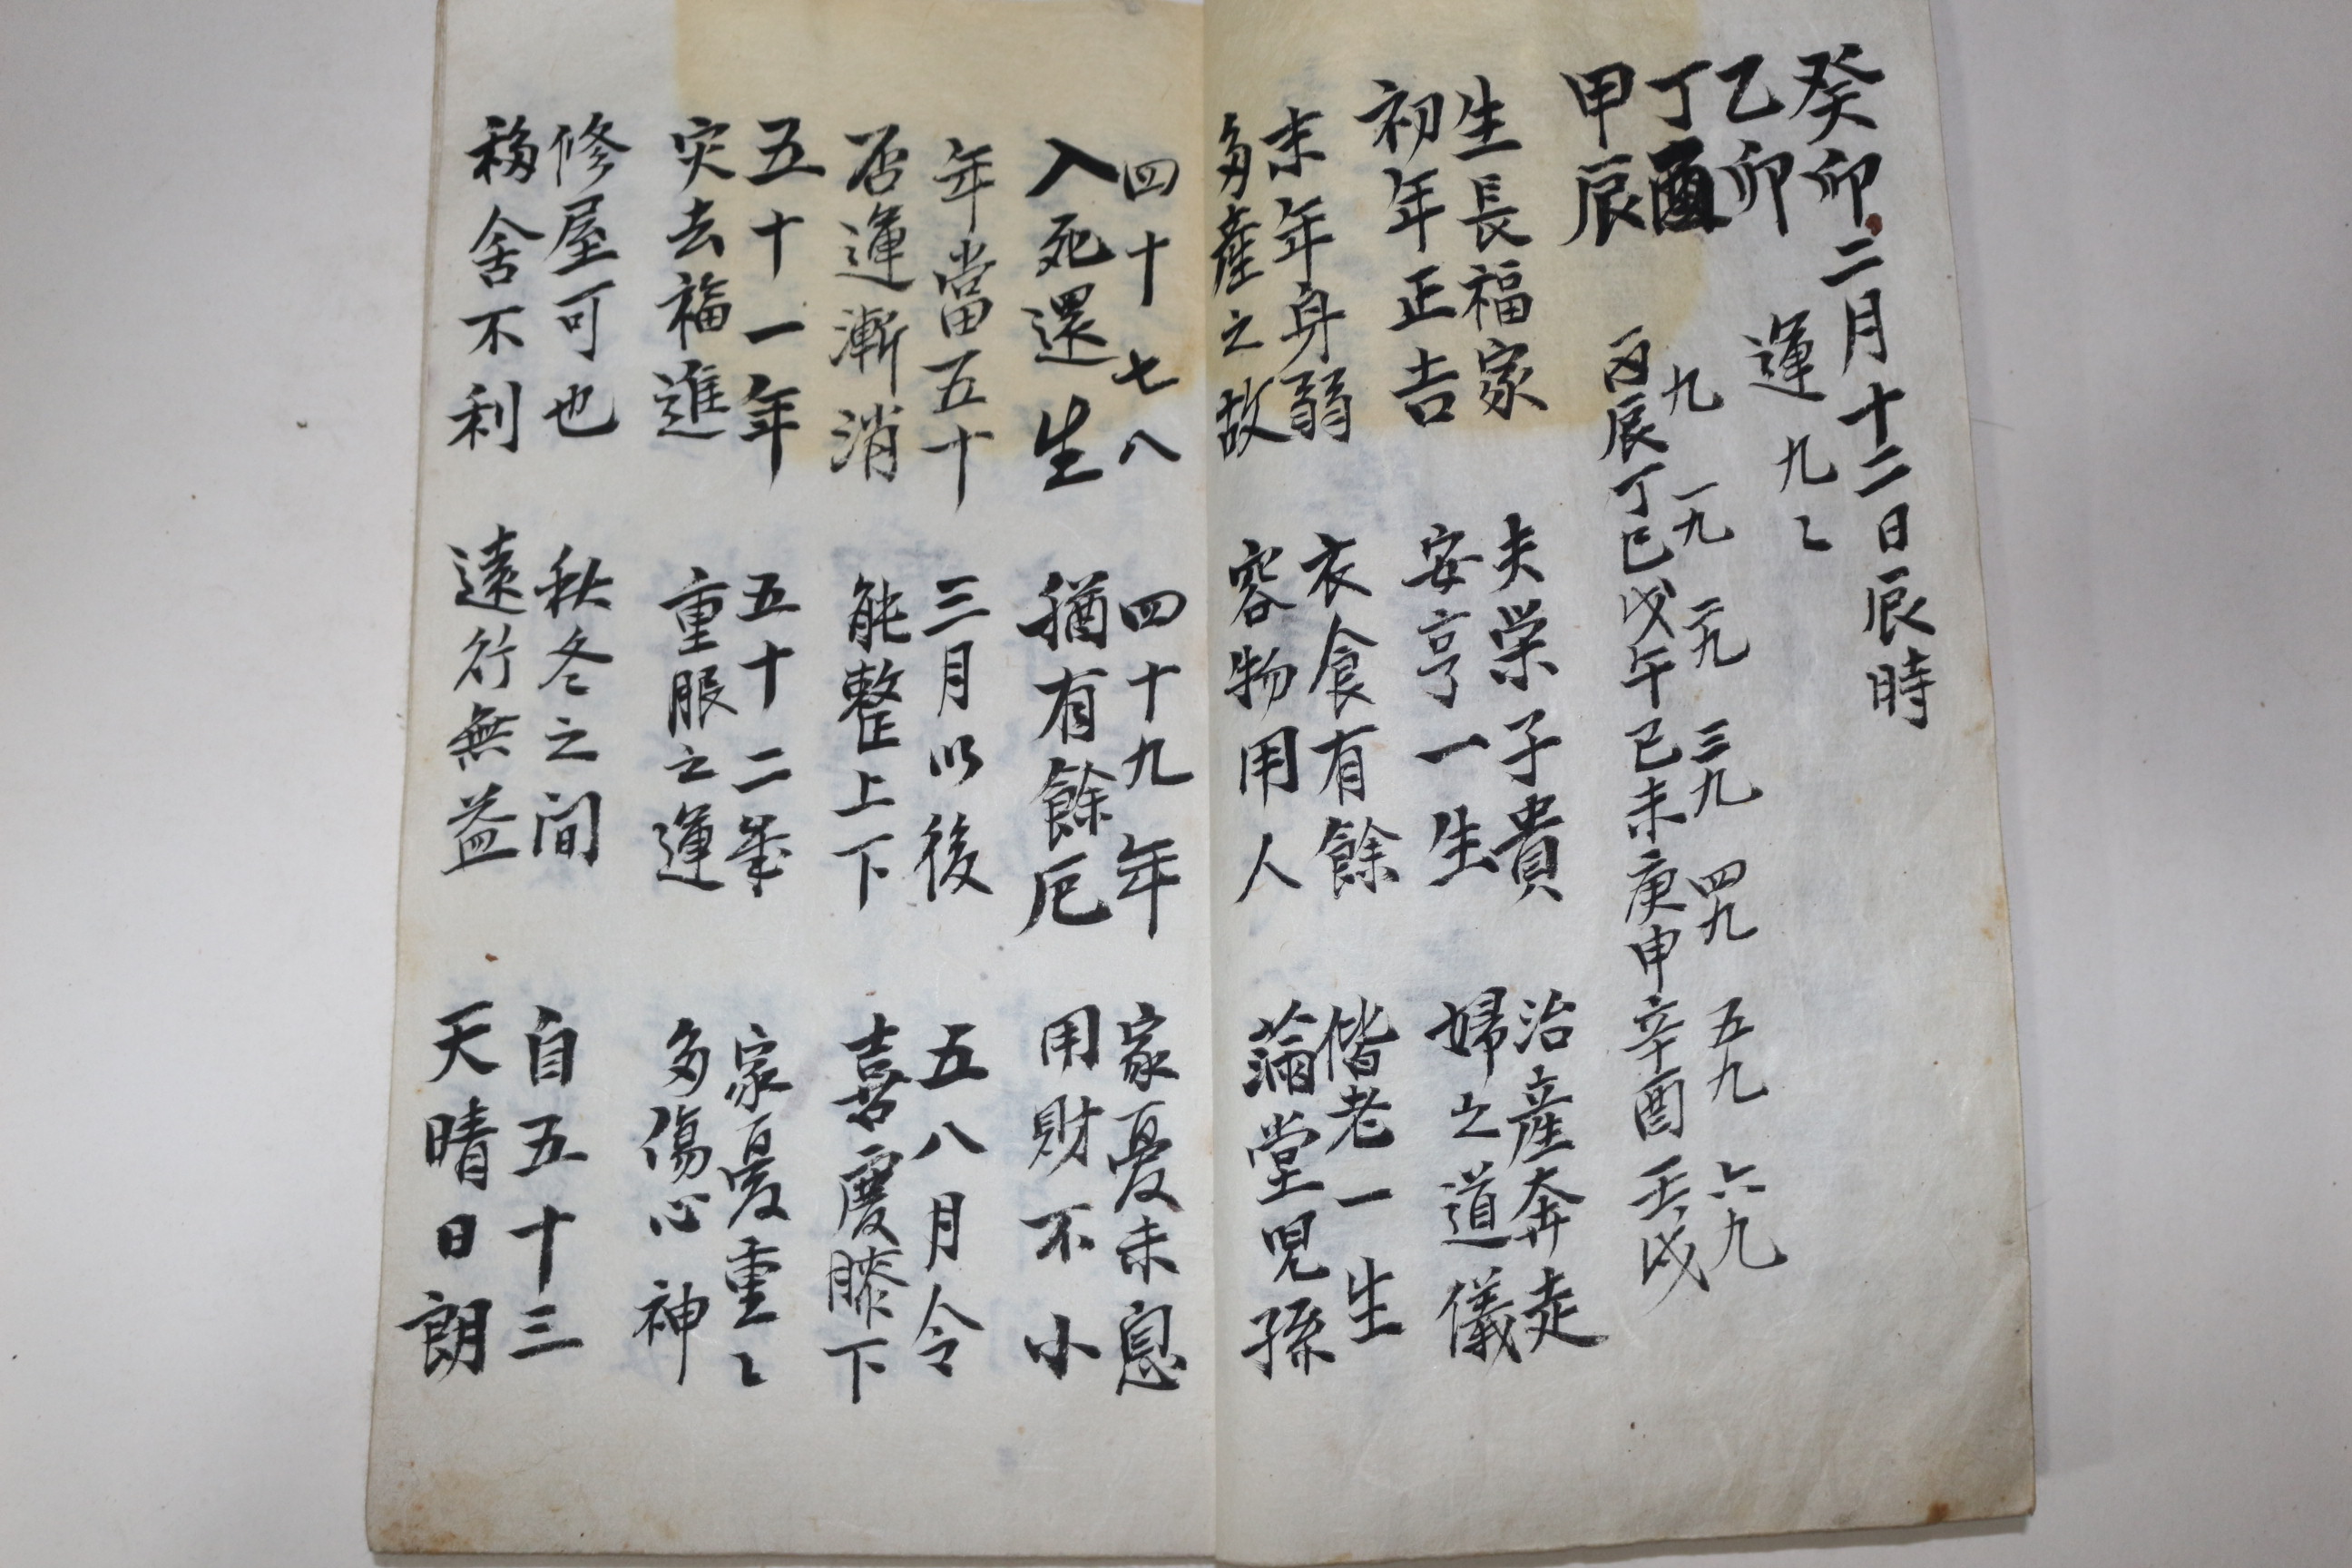 癸卯二月十二日辰時
乙卯 運九〻
丁酉 九 一九 二九 三九 四九 五九 六九
甲辰 丙辰丁巳戊午己未庚申辛酉壬戌
生長福家 夫栄子貴 治産奔走
初年正吉 安亨一生 婦之道儀
末年身弱 衣食有餘 偕老一生
多產之故 容物用人 滿堂児孫
四十七八 四十九年 家憂未息
入死還生 猶有餘厄 用財不小
年當五十 三月以後 五八月令
否運漸消 能整上下 喜慶膝下
五十一年 五十二年 家憂重〻
灾去福進 重服之運 多傷心神
修屋可也 秋冬之间 自五十三
移舍不利 遠行無益 天晴日朗